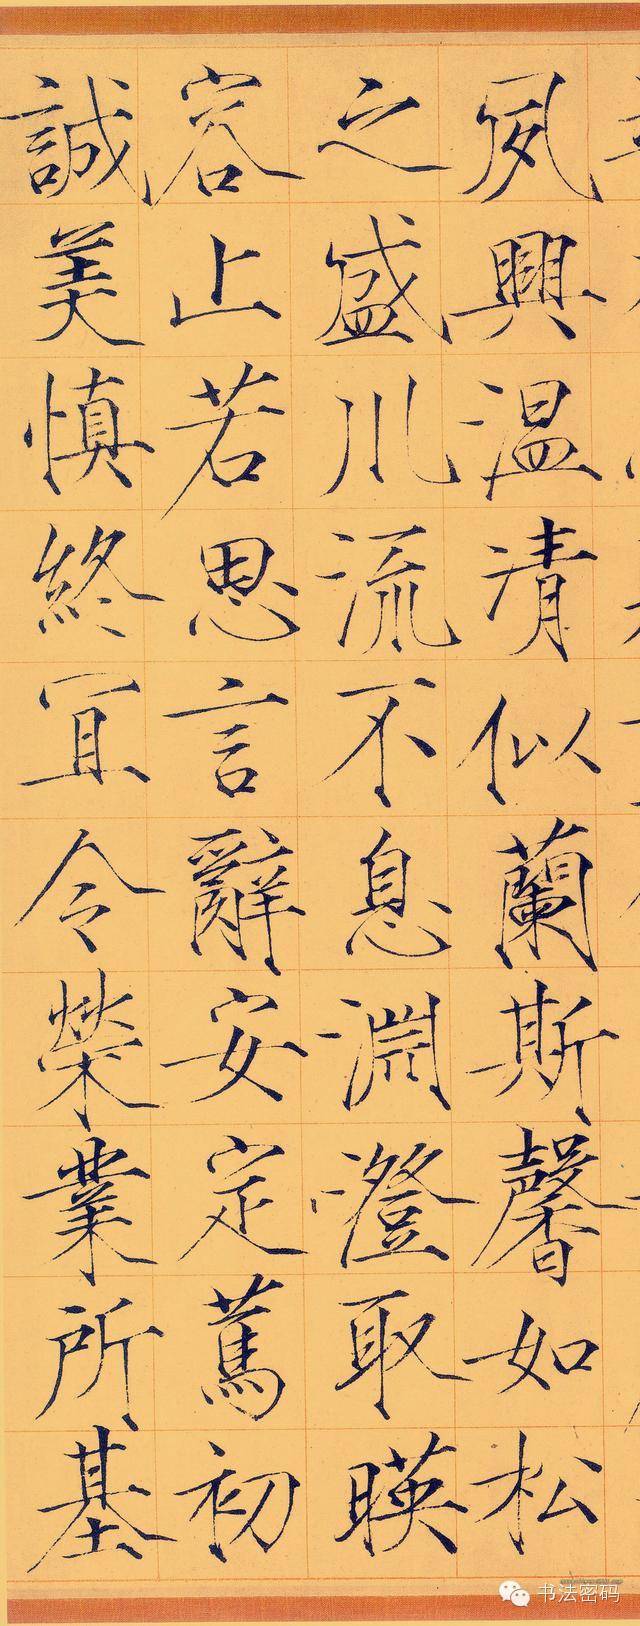 夙興溫凊似蘭斯馨如松
之盛川流不息淵澄取暎
容止若思言辭安定篤初
誠美慎終宜令榮業所基
书法密码